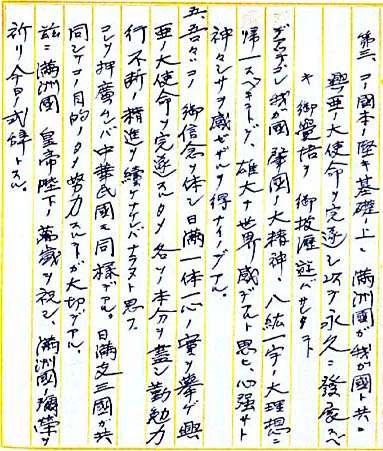 第三、コノ國本ノ堅キ基礎ノ上ニ満洲國が我が國ト共ニ
興亜ノ大使命ヲ完遂シ以テ永久ニ發展スベ
キ御覺悟ヲ御披瀝遊バサレタコト
デアツテコレ我が國肇國ノ大精神、八紘一宇ノ大理想ニ
帰一スベキコトデ、雄大ナ世界感デアルト思ヒ、心強サト
神々シサヲ感ゼザルヲ得ナイノデアル。
五、吾々ハコノ御信念ヲ体シ日満一体一心ノ實ヲ擧ゲ興
亜ノ大使命ヲ完遂スルタメ各々ノ本分ヲ盡シ勤勉力
行不断ノ精進ヲ續ケナケレバナラヌト思フ
コレヲ押廣ムレバ中華民國モ同様デアル。日満支三國が共
同シテコノ目的ノタメ努力スルコトが大切デアル。
茲ニ満洲國皇帝陛下ノ萬歳ヲ祝シ、満洲國彌榮ヲ
祈リ今日ノ式辞トスル。